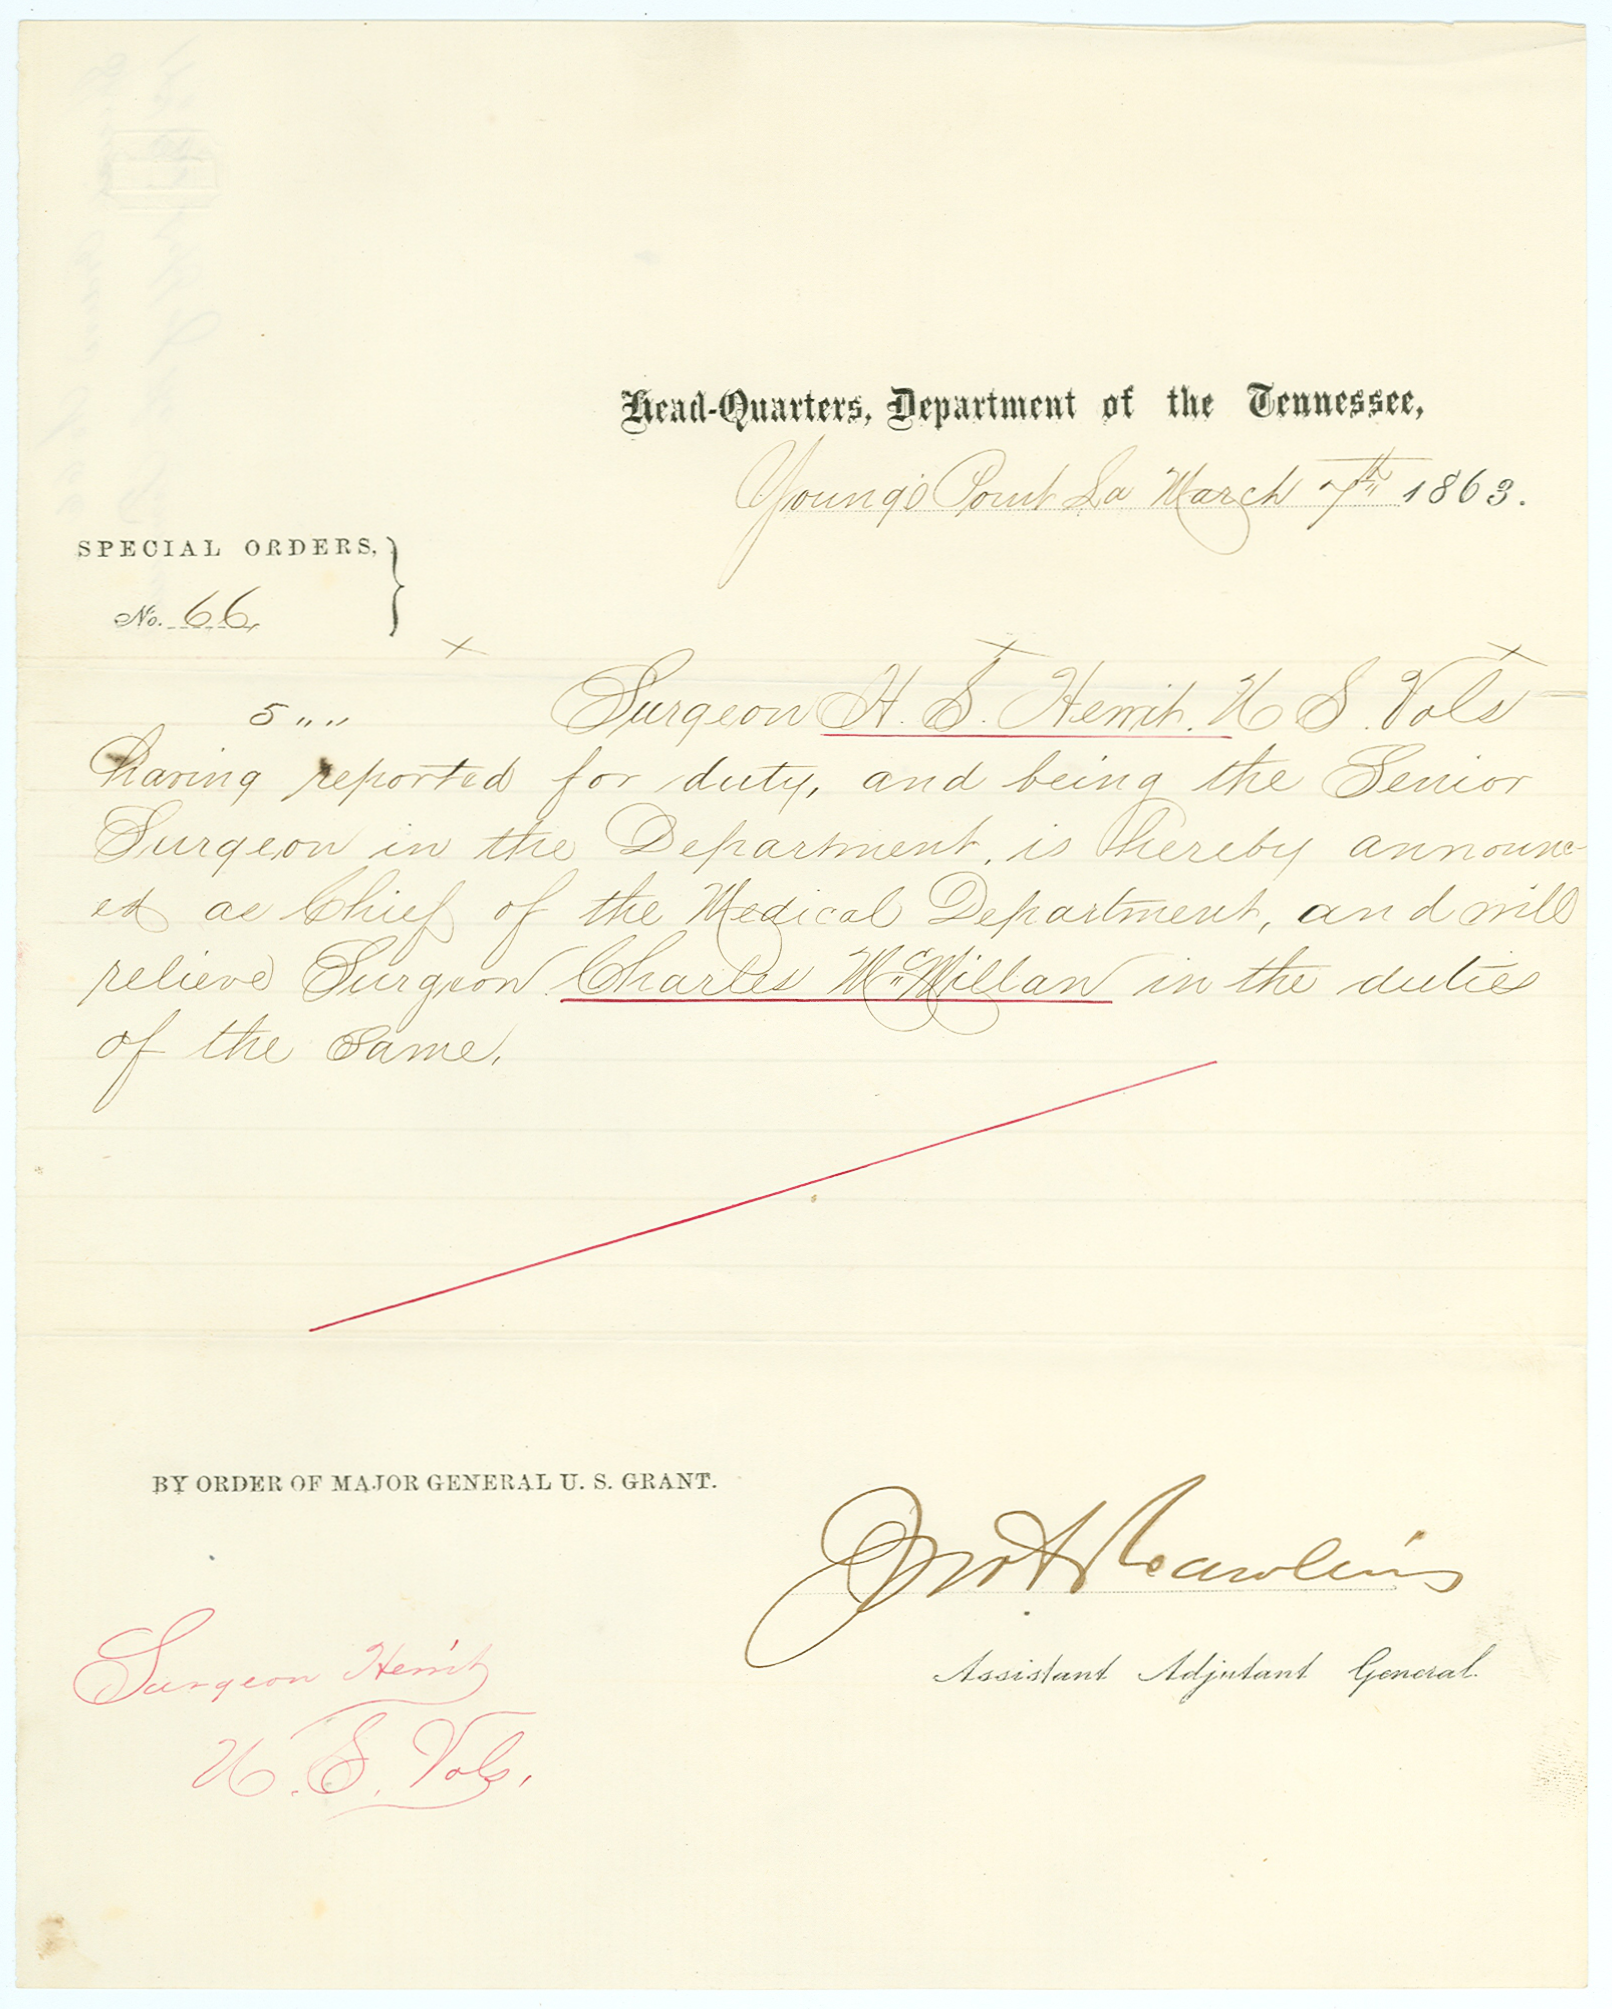 Head-Quarters, Department of the Tennessee,
Young's Point La March 7th 1863.
SPECIAL ORDERS,
No. 66
× × ×
5 „ „ Surgeon H. S. Hewit. U S. Vols
having reported for duty, and being the Senior
Surgeon in the Department, is hereby announc-
ed as Chief of the Medical Department, and will
relieve Surgeon Charles McMillan in the duties
of the same.
BY ORDER OF MAJOR GENERAL U. S. GRANT.
Jno A Rawlins
Assistant Adjutant General.
Surgeon Hewit
U. S. Vols.